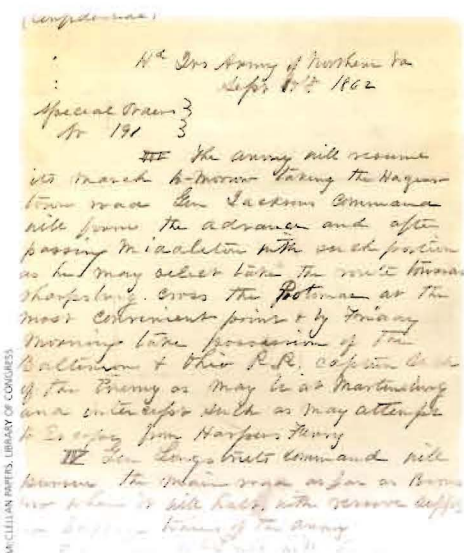 (Confidential)
Hd Qrs Army of Northern Va
Sept 9th 1862
Special Orders }
No 191 }
III The Army will resume
its march to-morrow taking the Hagers-
town road Gen Jacksons Command
will form the advance and after
passing Middleton with such portion
as he may select take the route towards
Sharpsburg. cross the Potomac at the
most convenient point & by Friday
Morning take possession of the
Baltimore & Ohio R.R. capture such
of the Enemy as may be at Martinsburg
and intercept such as may attempt
to Escape from Harpers Ferry
IV Gen Longstreets Command will
pursue the main road as far as Boons
boro where it will halt, with reserve supply
and baggage trains of the army
MCCLELLAN PAPERS, LIBRARY OF CONGRESS